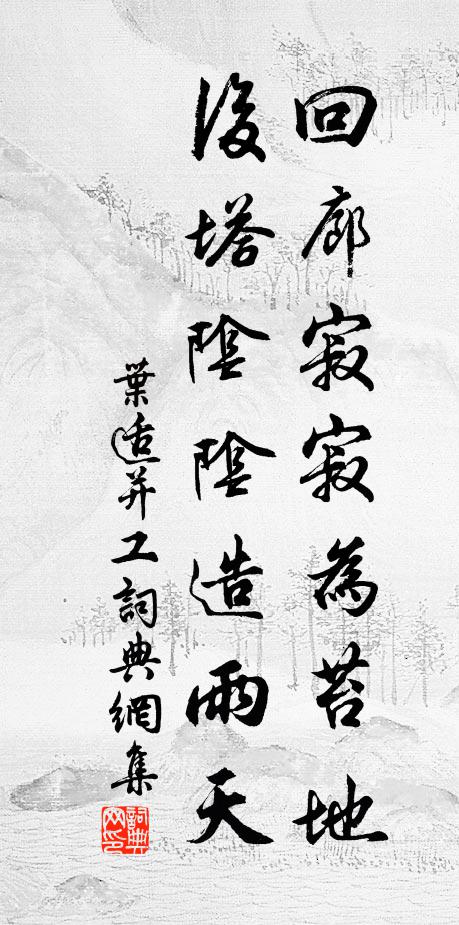 回廊寂寂為苔地
後塔陰陰造雨天
葉适并工詞典網集
詞典網印